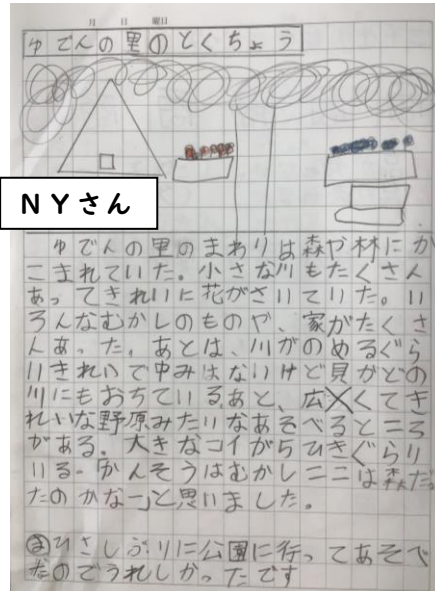 月 日 曜日
ゆでんの里のとくちょう
NYさん
ゆでんの里のまわりは森や林にか
こまれていた。小さな川もたくさん
あってきれいに花がさいていた。い
ろんなむかしのものや、家がたくさ
んあった。あとは、川がのめるぐら
いきれいで中みはないけど貝がどの
川にもおちている。あと、広くてき
れいな野原みたいなあそべるところ
がある。大きなコイがらひきぐらい
いる。かんそうはむかしここは森だっ
たのかなー」と思いました。
ま ひさしぶりに公園に行ってあそべ
たのでうれしかったです